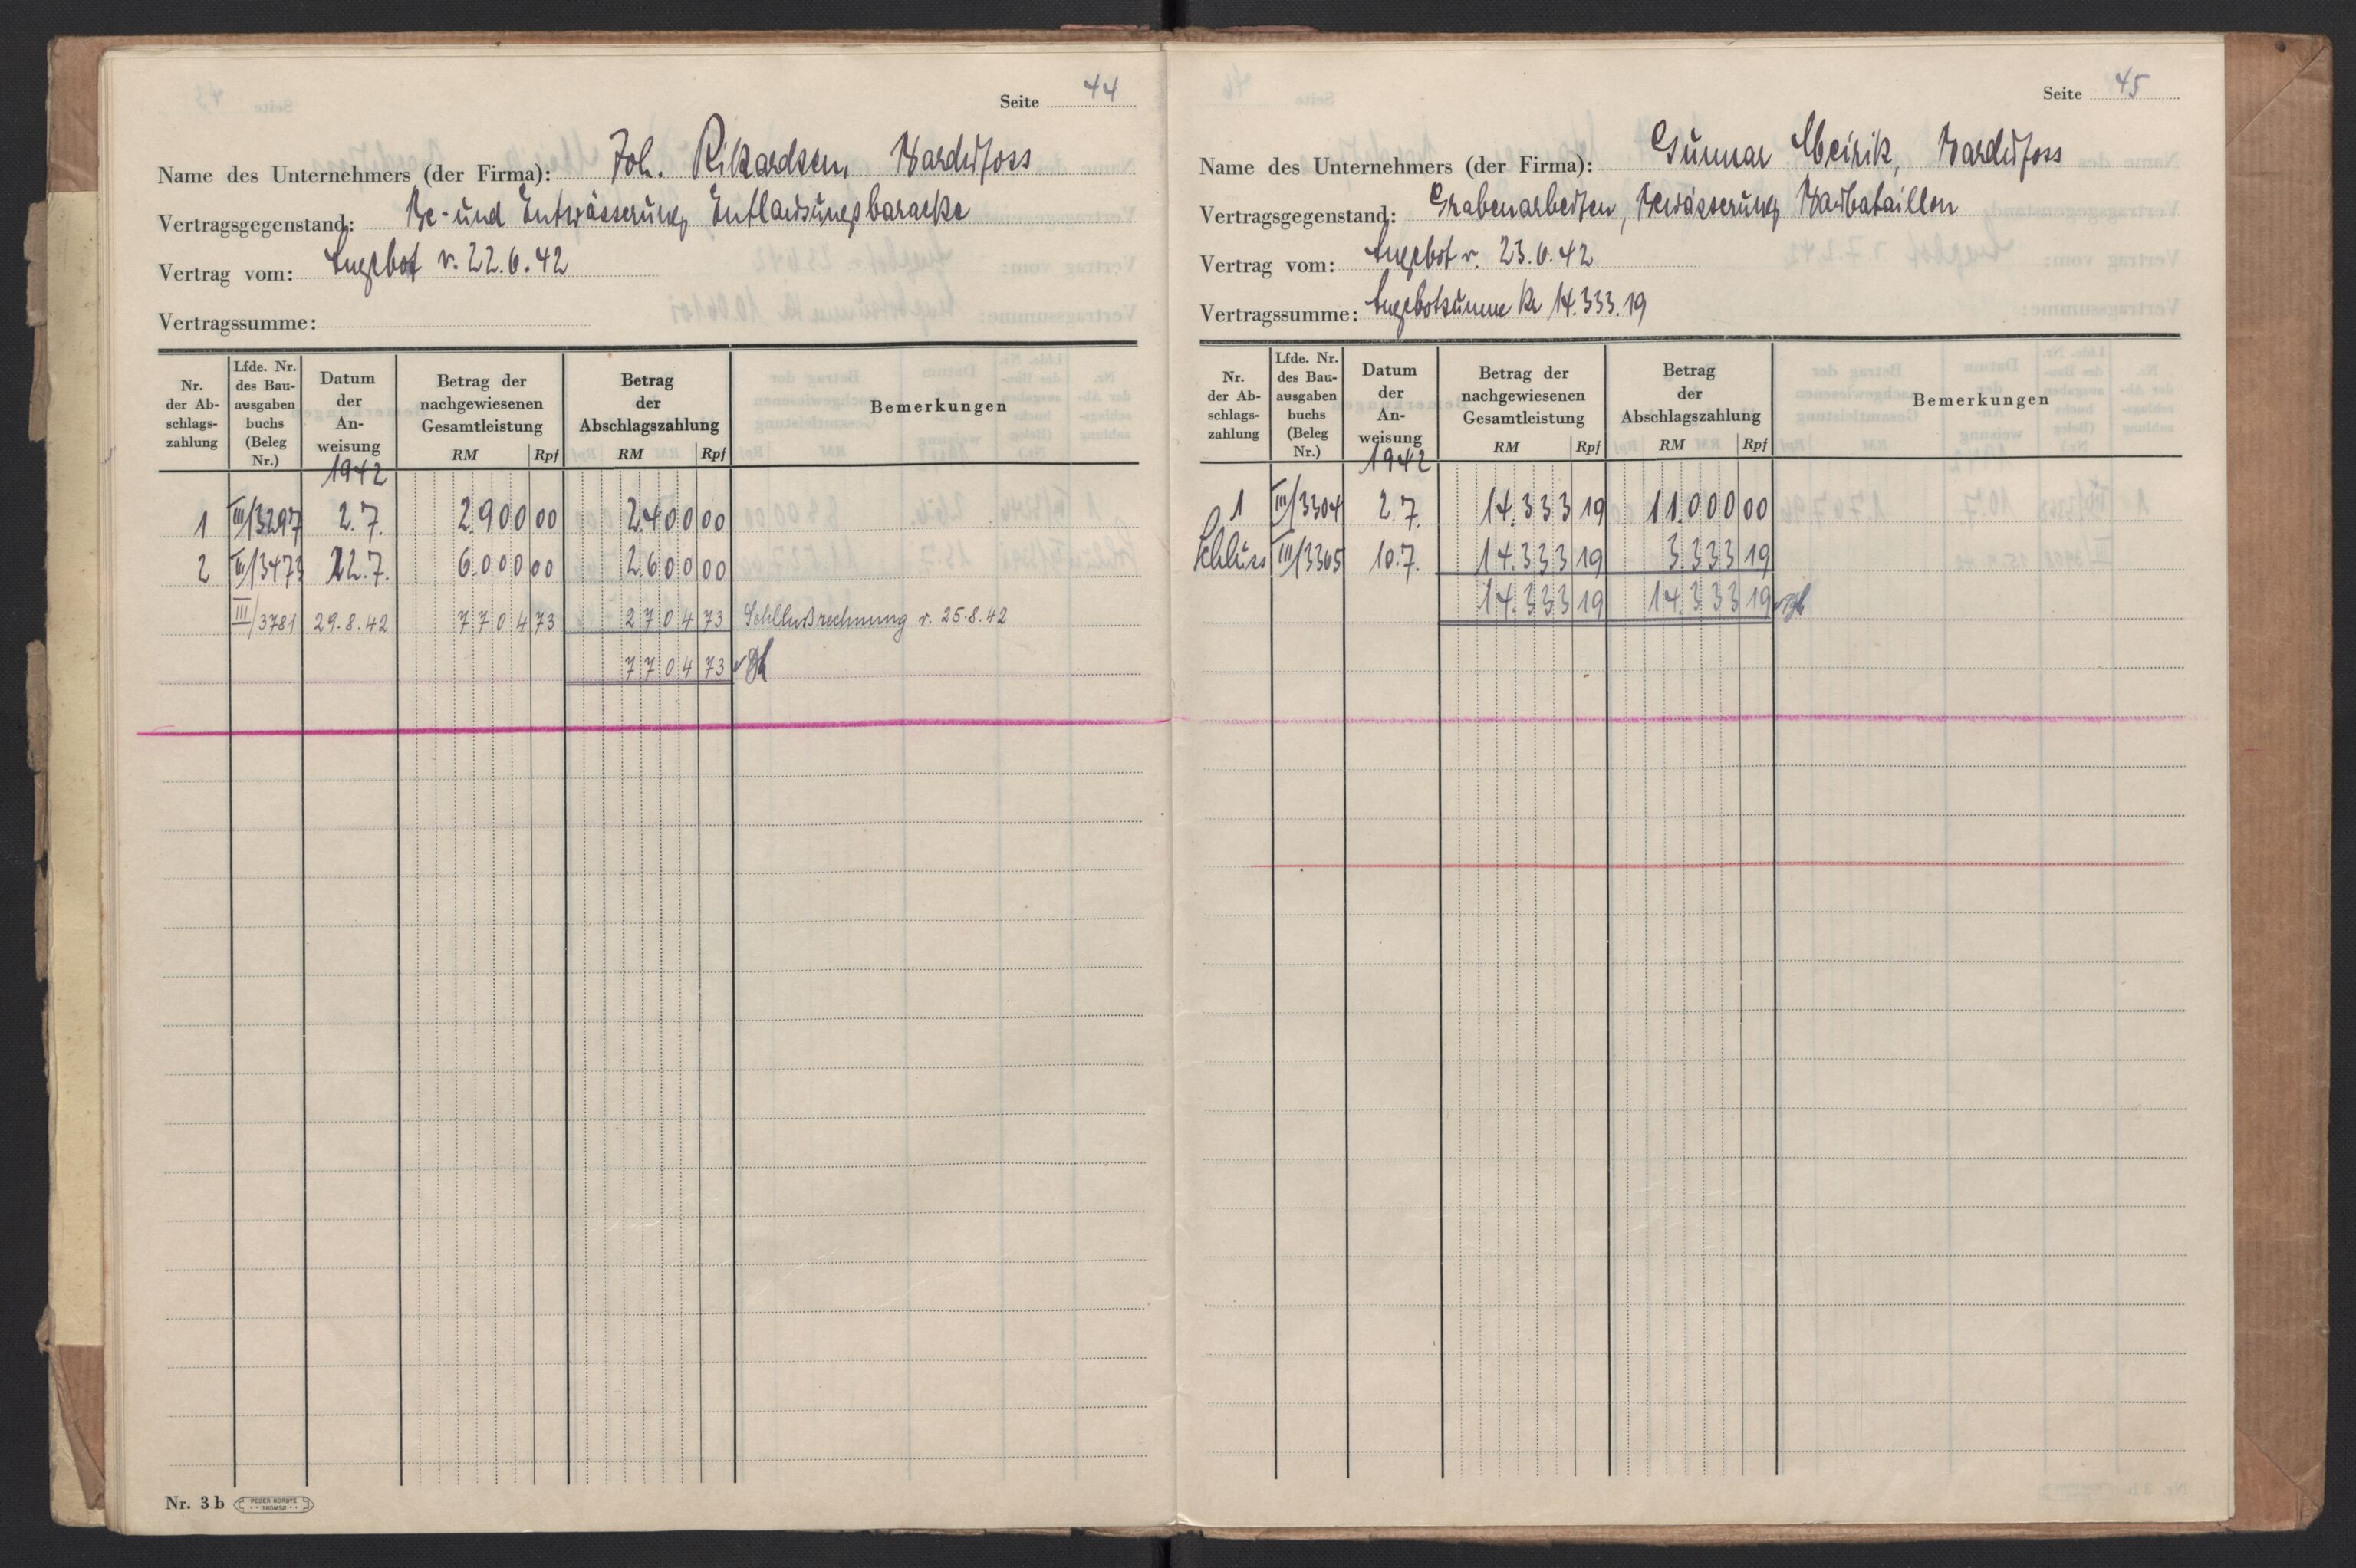 Seite 44
Name des Unternehmers (der Firma): Joh. Rikardsen, Bardufoss
Vertragsgegenstand: Be- und Entwässerung Entlausungsbaracke
Vertrag vom: Angebot v. 22.6.42
Vertragssumme:
Nr. der Ab-schlags-zahlung
Lfde. Nr. des Bau-ausgaben buchs (Beleg Nr.)
Datum der An-weisung
Betrag der nachgewiesenen Gesamtleistung RM Rpf
Betrag der Abschlagszahlung RM Rpf
Bemerkungen
1942
1 III/3297 2.7. 2.900 00 2.400 00
2 III/3473 22.7. 6.000 00 2.600 00
III/3781 29.8.42 7704 73 2704 73 Schlußrechnung v. 25.8.42
7704 73
Nr. 3b PEDER NORBYE TROMSØ
Seite 45
Name des Unternehmers (der Firma): Gunnar Bardufoss
Vertragsgegenstand: Grabenarbeiten, Bewässerung Baubataillon
Vertrag vom: Angebot v. 23.6.42
Vertragssumme: Angebotsumme Kr 14.333.19
Nr. der Ab-schlags-zahlung
Lfde. Nr. des Bau-ausgaben buchs (Beleg Nr.)
Datum der An-weisung
Betrag der nachgewiesenen Gesamtleistung RM Rpf
Betrag der Abschlagszahlung RM Rpf
Bemerkungen
1942
1 III/3304 2.7. 14.333 19 11.000 00
Schluss III/3365 10.7. 14.333 19 3.333 19
14.333 19 14.333 19